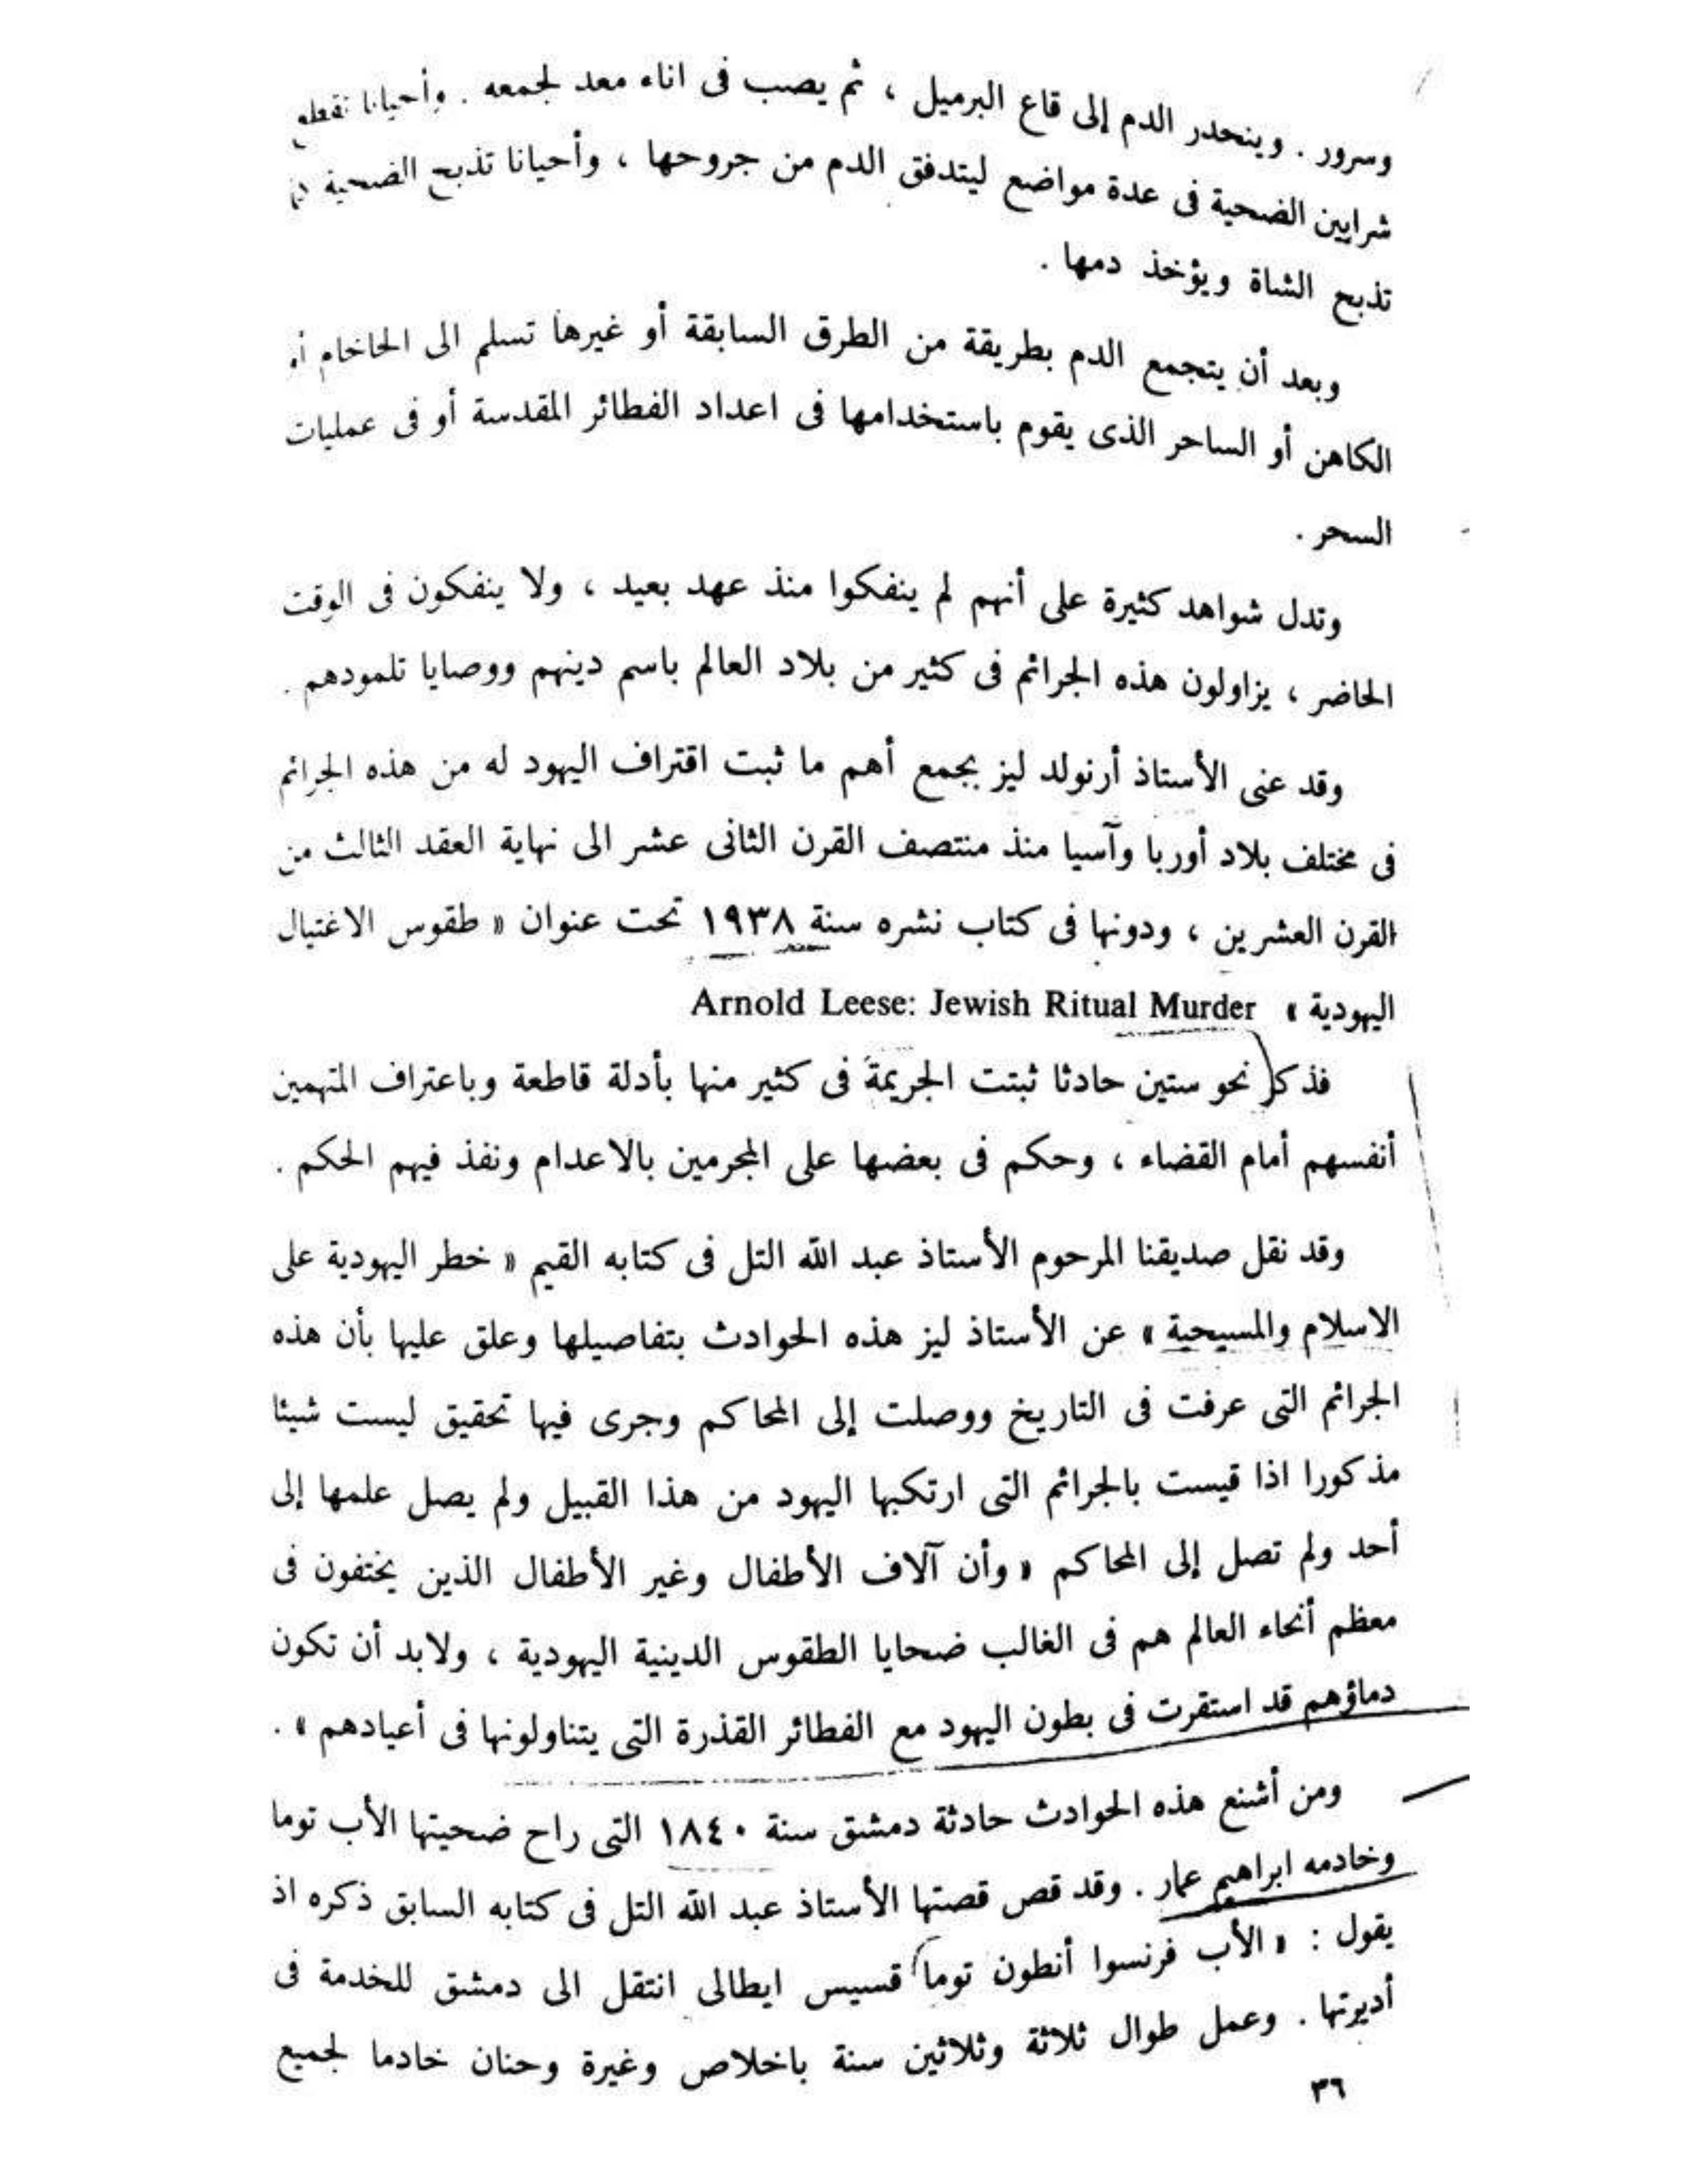 وسرور . وينحدر الدم إلى قاع البرميل ، ثم يصب فى اناء معد لجمعه . وأحيانا تقطع
شرايين الضحية فى عدة مواضع ليتدفق الدم من جروحها ، وأحيانا تذبح الضحية
تذبح الشاة ويؤخذ دمها .
وبعد أن يتجمع الدم بطريقة من الطرق السابقة أو غيرها تسلم الى الحاخام أو
الكاهن أو الساحر الذى يقوم باستخدامها فى اعداد الفطائر المقدسة أو فى عمليات
السحر .
وتدل شواهد كثيرة على أنهم لم ينفكوا منذ عهد بعيد ، ولا ينفكون فى الوقت
الحاضر ، يزاولون هذه الجرائم فى كثير من بلاد العالم باسم دينهم ووصايا تلمودهم .
وقد عنى الأستاذ أرنولد ليز بجمع أهم ما ثبت اقتراف اليهود له من هذه الجرائم
فى مختلف بلاد أوربا وآسيا منذ منتصف القرن الثانى عشر الى نهاية العقد الثالث من
القرن العشرين ، ودونها فى كتاب نشره سنة ١٩٣٨ تحت عنوان « طقوس الاغتيال
اليهودية » Arnold Leese: Jewish Ritual Murder
فذكر نحو ستين حادثا ثبتت الجريمة فى كثير منها بأدلة قاطعة وباعتراف المتهمين
أنفسهم أمام القضاء ، وحكم فى بعضها على المجرمين بالاعدام ونفذ فيهم الحكم .
وقد نقل صديقنا المرحوم الأستاذ عبد الله التل فى كتابه القيم « خطر اليهودية على
الاسلام والمسيحية » عن الأستاذ ليز هذه الحوادث بتفاصيلها وعلق عليها بأن هذه
الجرائم التى عرفت فى التاريخ ووصلت إلى المحاكم وجرى فيها تحقيق ليست شيئا
مذكورا اذا قيست بالجرائم التى ارتكبها اليهود من هذا القبيل ولم يصل علمها إلى
أحد ولم تصل إلى المحاكم « وأن آلاف الأطفال وغير الأطفال الذين يختفون فى
معظم أنحاء العالم هم فى الغالب ضحايا الطقوس الدينية اليهودية ، ولابد أن تكون
دماؤهم قد استقرت فى بطون اليهود مع الفطائر القذرة التى يتناولونها فى أعيادهم » .
ومن أشنع هذه الحوادث حادثة دمشق سنة ١٨٤٠ التى راح ضحيتها الأب توما
وخادمه ابراهيم عمار . وقد قص قصتها الأستاذ عبد الله التل فى كتابه السابق ذكره اذ
يقول : « الأب فرنسوا أنطون توما قسيس ايطالى انتقل الى دمشق للخدمة فى
أديرتها . وعمل طوال ثلاثة وثلاثين سنة باخلاص وغيرة وحنان خادما لجميع
٣٦